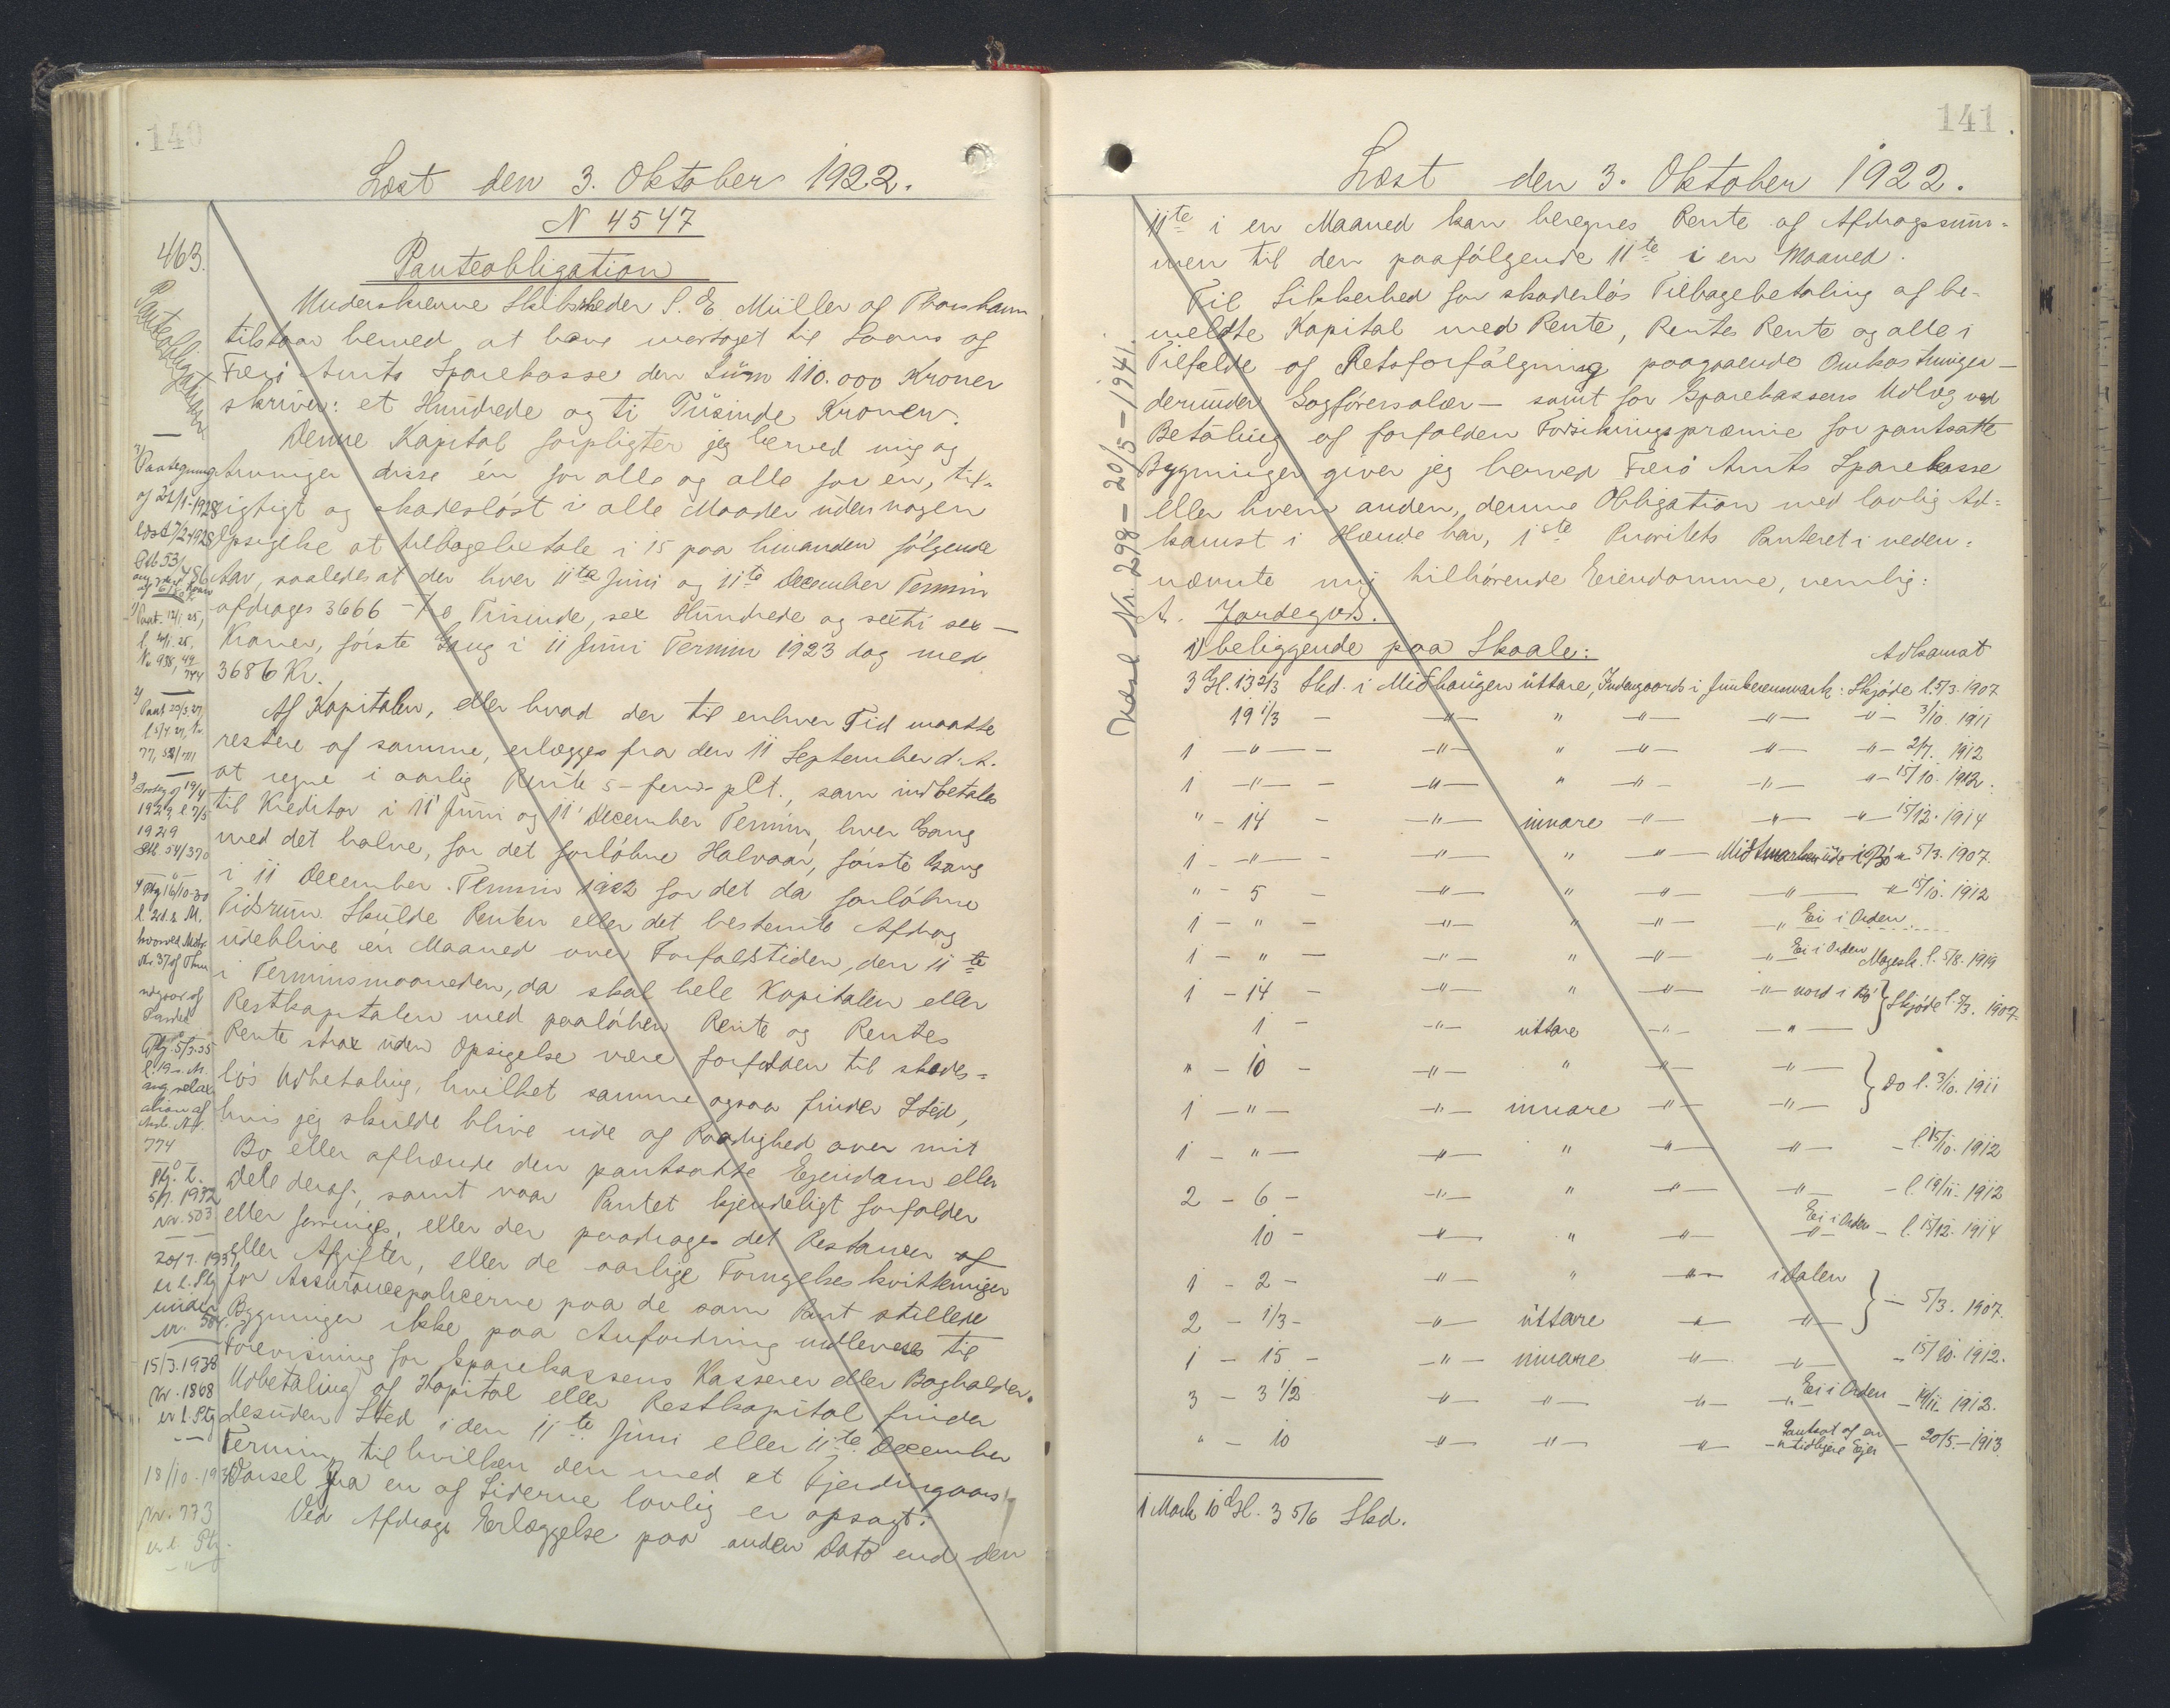 140
Læst den 3. Oktober 1922.
N 4547
463.
Panteobligation
Panteobligation
Underskrevne Skibsreder S. E. Müller af Thorshavn
tilstaar herved at have modtaget til Laans af
Færø Amts Sparekasse den Sum 110.000 Kroner
skriver: et Hundrede og ti Tusinde Kroner.
Denne Kapital forpligter jeg herved mig og
Arvinger disse en for alle og alle for en, rigtigt og skadesløst i alle Maader uden nogen
Opsigelse at tilbagebetale i 15 paa hinanden følgende
Aar, saaledes at der hver 11te Juni og 11te December Termin
afdrages 3666 - Tusinde, sex Hundrede og sexti sex -
Kroner, første Gang i 11 Juni Termin 1923 dog med
3686 Kr.
Af Kapitalen, eller hvad der til enhver Tid maatte
restere af samme, erlægges fra den 11 September d. A.
at regne i aarlig Rente 5 - fem - pCt., som indbetales
til Kreditor i 11 Juni og 11 December Termin, hver Gang
med det halve, for det forløbne Halvaar, første Gang
i 11 December Termin 1922 for det da forløbne
Tidsrum. Skulde Renten eller det bestemte Afdrag
udeblive en Maaned over Forfaldstiden, den 11te
i Terminsmaaneden, da skal hele Kapitalen eller
Restkapitalen med paaløben Rente og Rentes
Rente strax uden Opsigelse være forfalden til skades=
løs Udbetaling, hvilket samme ogsaa finder Sted,
hvis jeg skulde blive ude af Raadighed over mit
Bo eller afhænde den pantsatte Ejendom eller
Dele deraf, samt naar Pantet kjendeligt forfalder
eller forringes, eller der paadrages det Restancer af
eller Afgifter, eller de aarlige Fornyelseskvitteringer
for Assurancepolicerne paa de som Pant stillede
Bygninger ikke paa Anfordring udleveres til
Forevisning for Sparekassens Kasserer eller Bogholder.
Udbetaling af Kapital eller Restkapital finder
desuden Sted i den 11te Juni eller 11te December
Termin, til hvilken den med et Fjerdingaars
Varsel fra en af Siderne lovlig er opsagt.
Ved Afdrags Erlæggelse paa anden Dato end den
Paategning
af 21/1-1928
læst 7/2 1928
1929
Nr 37 af Thvn
udgaar af
Pantet
774
5/7. 1932
Nr. 503
20/7. 1937
er l. Ptg
under
nr. 504.
15/3. 1938
Nr. 1868
er l. Ptg
nr. 773
er l. Ptg.
141.
Læst den 3. Oktober 1922.
Udsl Nr. 298 - 20/5 - 1941.
11te i en Maaned kan beregnes Rente af Afdragssum=
men til den paafølgende 11te i en Maaned.
Til Sikkerhed for skadesløs Tilbagebetaling af be-
meldte Kapital med Rente, Rentes Rente og alle i
Tilfælde af Retsforfølgning paagaaende Omkostninger -
derunder Sagførersalær - samt for Sparekassens Udlæg ved
Betaling af forfalden Forsikringspræmie for pantsatte
Bygninger giver jeg herved Færø Amts Sparekasse
eller hvem anden, denne Obligation med lovlig Ad=
komst i Hænde har, 1ste Prioritets Panteret i neden=
nævnte mig tilhørende Eiendomme, nemlig:
A. Jordegods.
1) beliggende paa Skaale: Adkomst
3 Gl. 13 2/3 Skd. i Miðhaugen úttare, Indengaards i Junkerensmark: Skjøde l. 5/3. 1907
19 1/3 - -"- " -"- -"- -"- 3/10. 1911
1 -"- - -"- " -"- -"- -"- 2/7. 1912
1 -"- - -"- " -"- -"- -"- 15/10. 1912.
" - 14 - -"- innare -"- -"- -"- 15/12. 1914
1 -"- - -"- " -"- Miðmarken úde i Bø -"- 5/3. 1907.
" - 5 - -"- " -"- -"- -"- 15/10. 1912
1 - " - -"- " -"- -"- Ei i Orden
1 - " - -"- " -"- -"- Ei i Orden Magesk. l. 5/8. 1919
1 - 14 - -"- " -"- -"- nord i Bø } Skjøde l. 5/3. 1907.
1 - -"- úttare -"- -"-
" - 10 - -"- " -"- -"- } Do l. 3/10. 1911
1 -"- -"- innare -"- -"-
1 - " - -"- " -"- -"- - l. 15/10. 1912
2 - 6 - -"- " -"- -"- - l. 19/11. 1912
10 - -"- " -"- Ei i Orden -"- - l. 15/12. 1914
1 - 2 - -"- " -"- i Dalen } - 5/3. 1907.
2 - 1/3 - -"- úttare -"- -"-
1 - 15 - -"- innare -"- -"- - 15/10. 1912.
3 - 3 1/2 -"- -"- -"- -"- Ei i Orden - 19/11. 1912.
" - 10 -"- -"- -"- -"- Pantsat af en tidligere Ejer - 20/5. - 1913
1 Mark 10 Gl. 3 5/6 Skd.